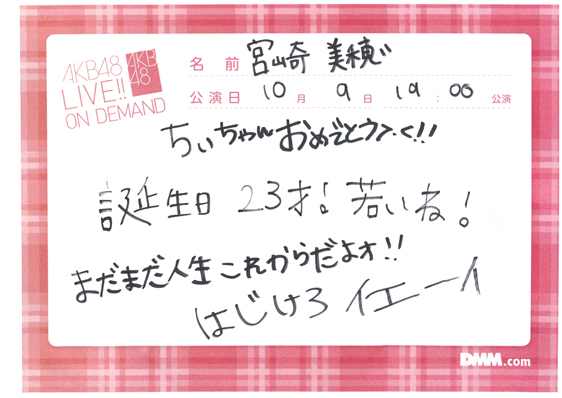 AKB48
LIVE!!
ON DEMAND
AKB
48
名前 宮崎 美穂
公演日 10月 9日 19:00公演
ちぃちゃんおめでとうっく!!
誕生日 23才! 若いね!
まだまだ人生これからだよォ!!
はじけろ イエーイ
DMM.com